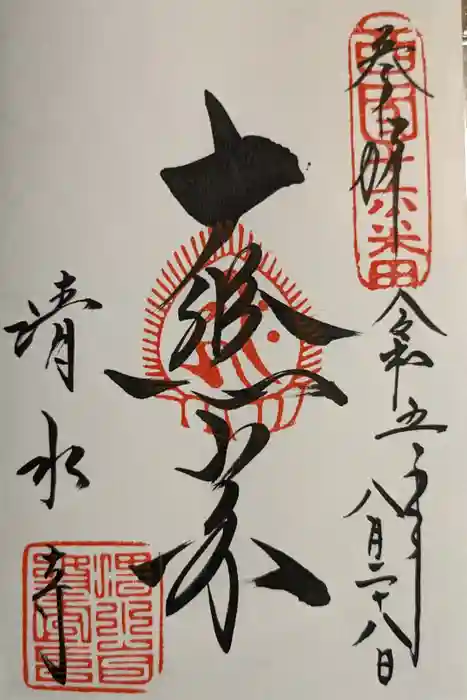 奉拝
西国十六番
令和五年
八月二十八日
大悲閣
清水寺